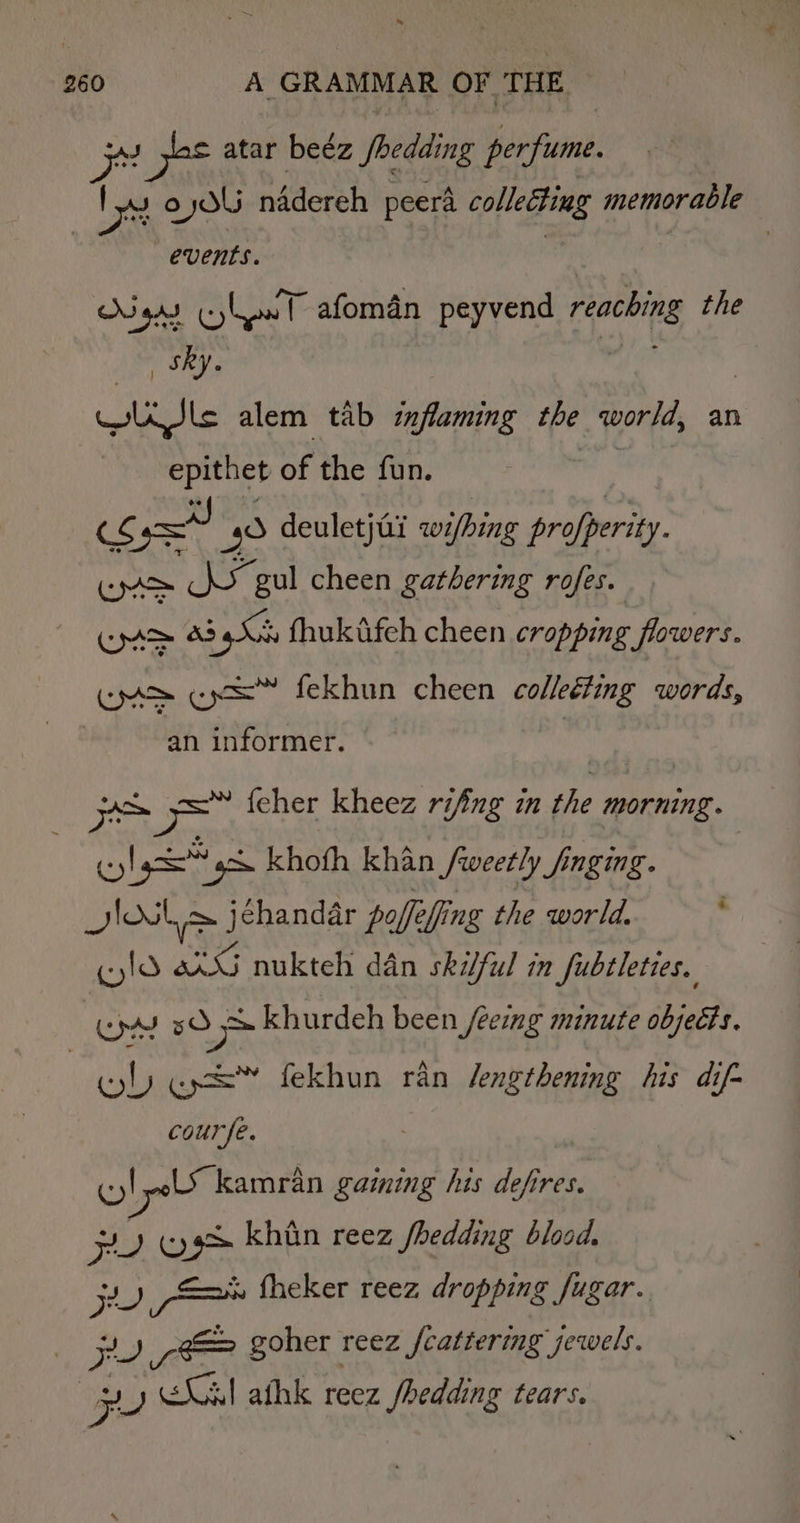 260 A GRAMMAR OF THE
عطر بيز atar beéz ſhedding perfume.
نادره پيرا nádereh peerâ collecting memorable
events.
آسمان پيوند aſomân peyvend reaching the
ſky.
عالمتاب alem tâb inflaming the world, an
epithet of the ſun.
دولتجوي deuletjûï wiſhing proſperity.
گل چين gul cheen gathering roſes.
شكوفه چين ſhukûfeh cheen cropping flowers.
سخن چين ſekhun cheen collecting words,
an informer.
سحر خيز ſeher kheez riſing in the morning.
خوشخوان khoſh khân ſweetly ſinging.
جهاندار jéhandâr poſſeſſing the world.
نكته دان nukteh dân skilful in ſubtleties.
خرده بين khurdeh been ſeeing minute objects.
سخن ران ſekhun rân lengthening his diſ-
courſe.
كامران kamrân gaining his deſires.
خون ريز khûn reez ſhedding blood.
شكر ريز ſheker reez dropping ſugar.
گهر ريز goher reez ſcattering jewels.
اشك ريز aſhk reez ſhedding tears.